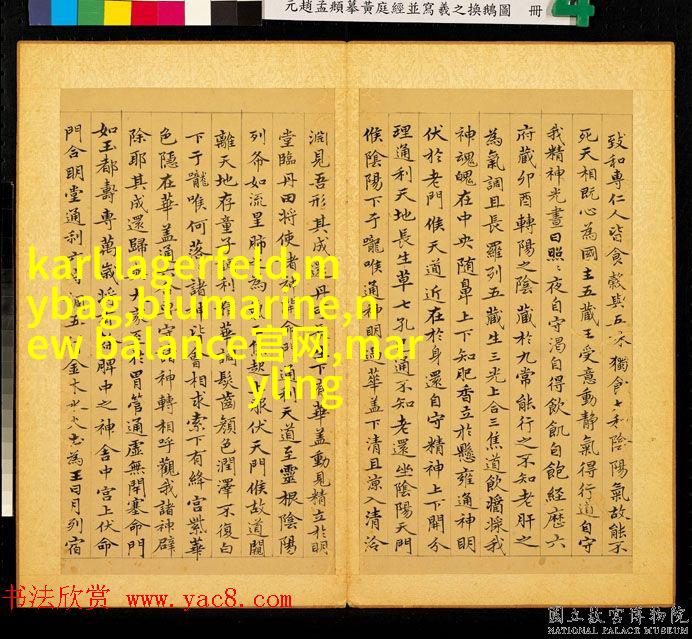 元趙孟頫摹黃庭經並寫羲之換鵝圖 冊
致和專仁人皆食穀與五味獨食太和陰陽氣故能不
死天相既心為國主五藏王受意動靜氣得行道自守
我精神光晝日照照夜自守渴自得飲飢自飽經歷六
府藏卯酉轉陽之陰藏於九常能行之不知老肝之
為氣調且長羅列五藏生三光上合三焦道飲醬漿我
神魂魄在中央随鼻上下知肥香立於懸雍通神明
伏於老門候天道近在於身還自守精神上下開分
理通利天地長生草七孔通不知老還坐陰陽天門
候陰陽下于嚨喉通神明過華蓋下清且涼入清泠
淵見吾形其成還丹可長生下有華蓋動見精立於明
堂臨丹田將使諸神開命門通利天道至靈根陰陽
列布如流星肺之為氣三焦起上服伏天門候故道闚
離天地存童子調利精華調髮齒顏色潤澤不復白
下于嚨喉何落落諸神皆會相求索下有絳宮紫華
色隱在華蓋通六合專守諸神轉相呼觀我諸神辟
除耶其成還歸與大家至於胃管通虛無閉塞命門
如玉都壽專萬歲將有餘脾中之神舍中宮上伏命
門合明堂通利六府調五行金木水火土為王日月列宿
karl lagerfeld,m
ybag,blumarine,n
ew balance官网,mar
yling
书法欣赏 www.yac8.com
國立故宮博物院
NATIONAL PALACE MUSEUM